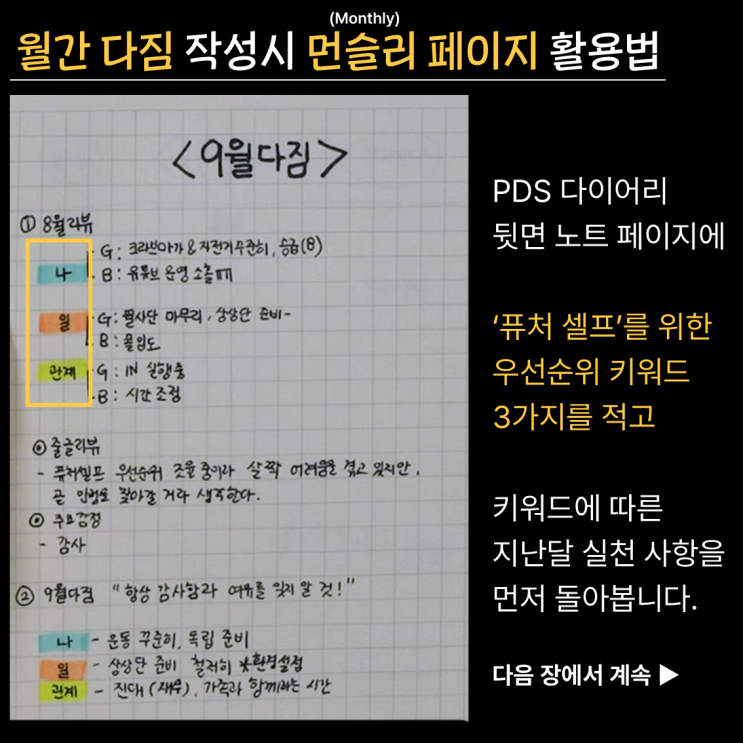 (Monthly)
월간 다짐 작성시 먼슬리 페이지 활용법
<9월다짐>
① 8월리뷰
나
G: 크라브마가 & 자전거꾸준히, 승급(B)
B: 유튜브 운영 소홀ㅠㅠ
일
G: 필사단 마무리, 상상단 준비~
B: 몰입도
관계
G: IN 실행중
B: 시간조절
◎ 줄글리뷰
- 퓨처셀프 우선순위 조율 중이라 살짝 어려움을 겪고 있지만,
곧 방법도 찾아갈 거라 생각한다.
◎ 주요감정
- 감사
② 9월다짐 "항상 감사함과 여유를 잊지 말 것!"
나 - 운동 꾸준히, 독립 준비
일 - 상상단 준비 철저히 *환경설정
관계 - 진대 (새우), 가족과 함께하는 시간
PDS 다이어리
뒷면 노트 페이지에
‘퓨처 셀프’를 위한
우선순위 키워드
3가지를 적고
키워드에 따른
지난달 실천 사항을
먼저 돌아봅니다.
다음 장에서 계속 ▶